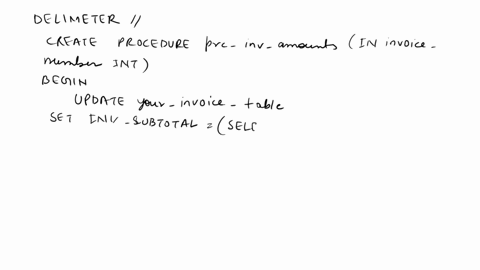 DELIMETER //
CREATE PROCEDURE prc_inv_amounts (IN invoice_
number INT)
BEGIN
UPDATE your_invoice_table
SET INV_SUBTOTAL = (SELE